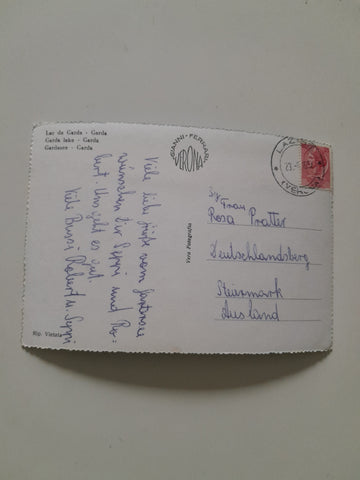 Lac de Garda - Garda
Garda lake - Garda
Gardasee - Garda
GIANNI - FERRARI
VERONA
Viele liebe Grüße vom Gardasee
wünschen Dir Seppi und Ro-
bert. Uns geht es gut.
Viele Bussi Robert u. Seppi
Vera Fotografia
Frau
Rosa Pratter
Deutschlandsberg
Steiermark
Ausland
Rip. Vietata